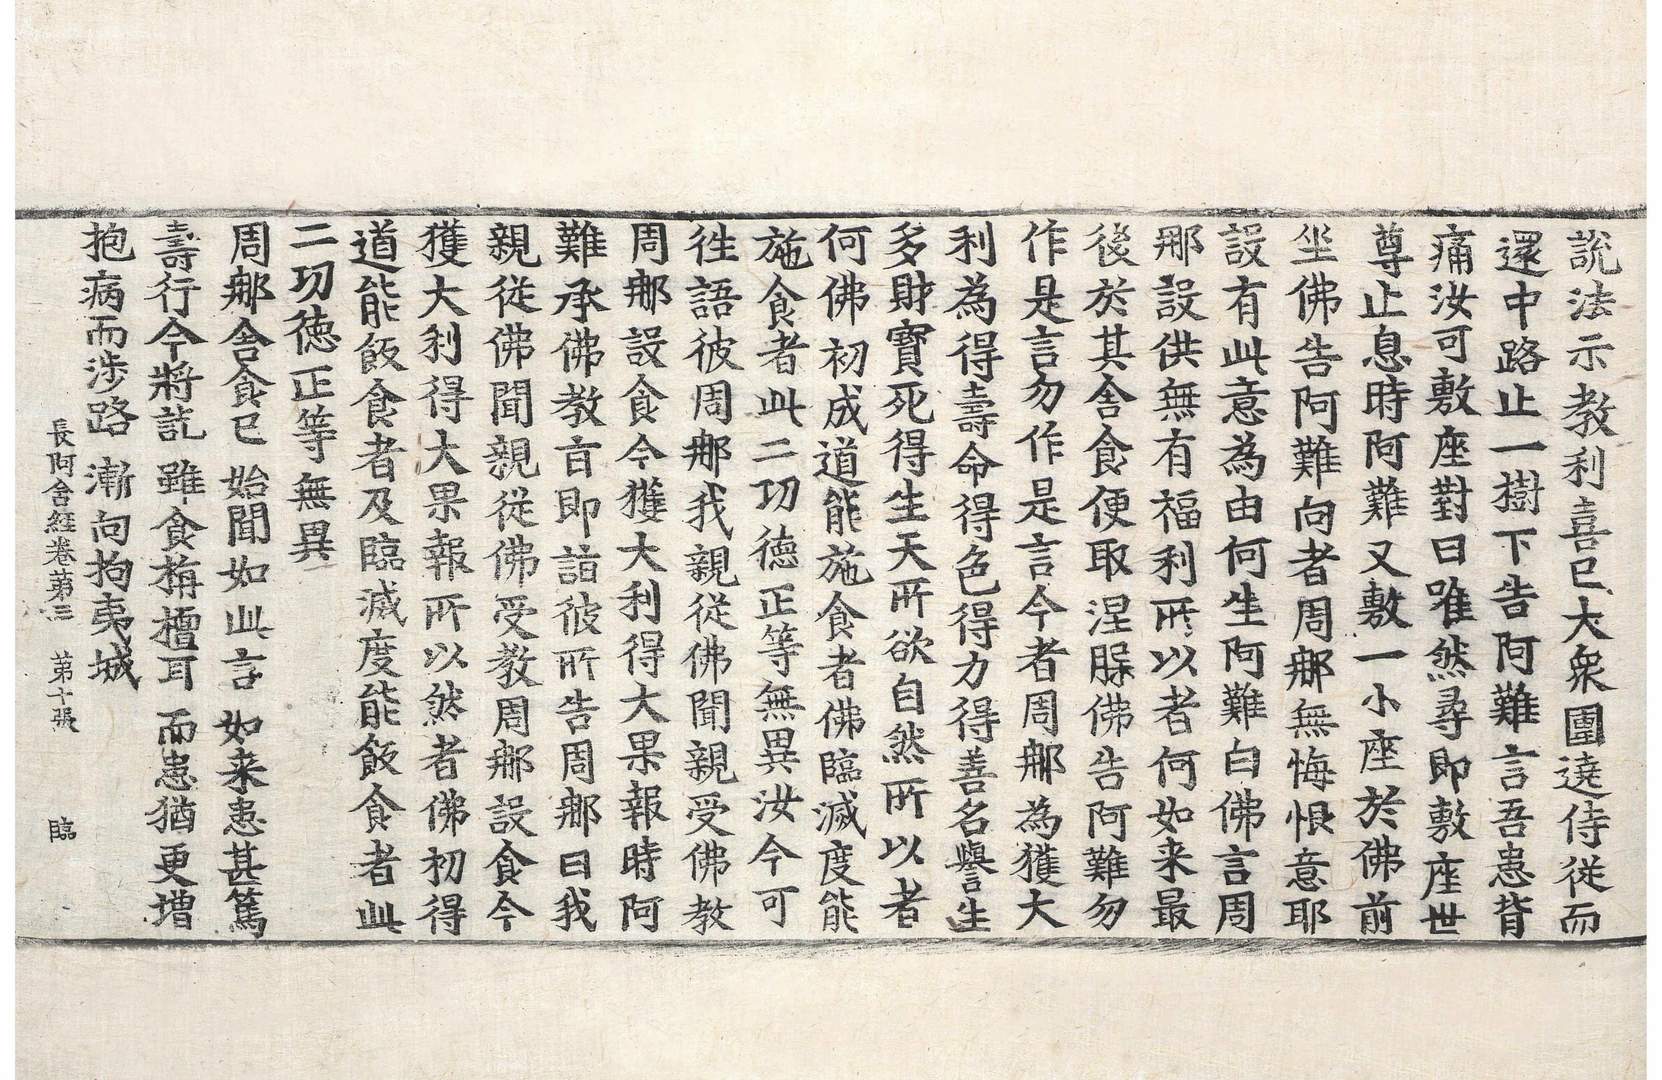 說法示教利喜已大衆圍遶侍從而
還中路止一樹下告阿難言吾患背
痛汝可敷座對曰唯然尋即敷座世
尊止息時阿難又敷一小座於佛前
坐佛告阿難向者周那無悔恨意耶
設有此意為由何生阿難白佛言周
那設供無有福利所以者何如来最
後於其舍食便取涅槃佛告阿難勿
作是言勿作是言今者周那為獲大
利為得壽命得色得力得善名譽生
多財寶死得生天所欲自然所以者
何佛初成道能施食者佛臨滅度能
施食者此二功徳正等無異汝今可
徃語彼周那我親從佛聞親受佛教
周那設食今獲大利得大果報時阿
難承佛教言即詣彼所告周那曰我
親從佛聞親從佛受教周那設食今
獲大利得大果報所以然者佛初得
道能飯食者及臨滅度能飯食者此
二功徳正等無異
周那舍食已 始聞如此言 如来患甚篤
壽行今將訖 雖食栴檀耳 而患猶更增
抱病而涉路 漸向拘夷城
長阿含經卷第三 第十張 臨